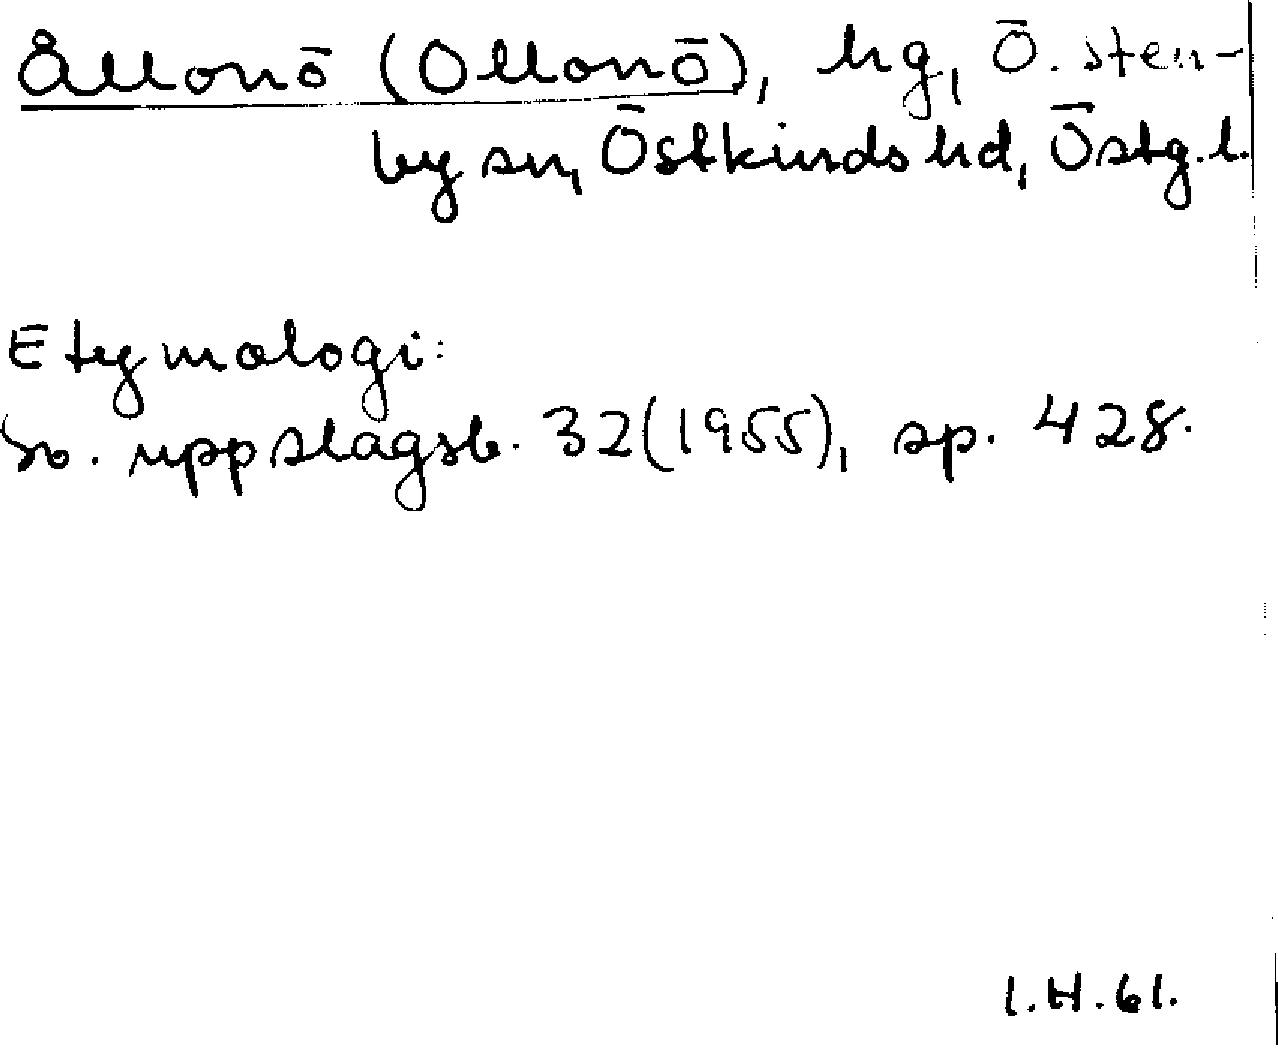 Ållonö (Ollonö), hg, Ö. Sten-
by sn, Östkinds hd, Östg.l.
Etymologi:
Sv. uppslagsb. 32(1955), sp. 428.
I.H.61.